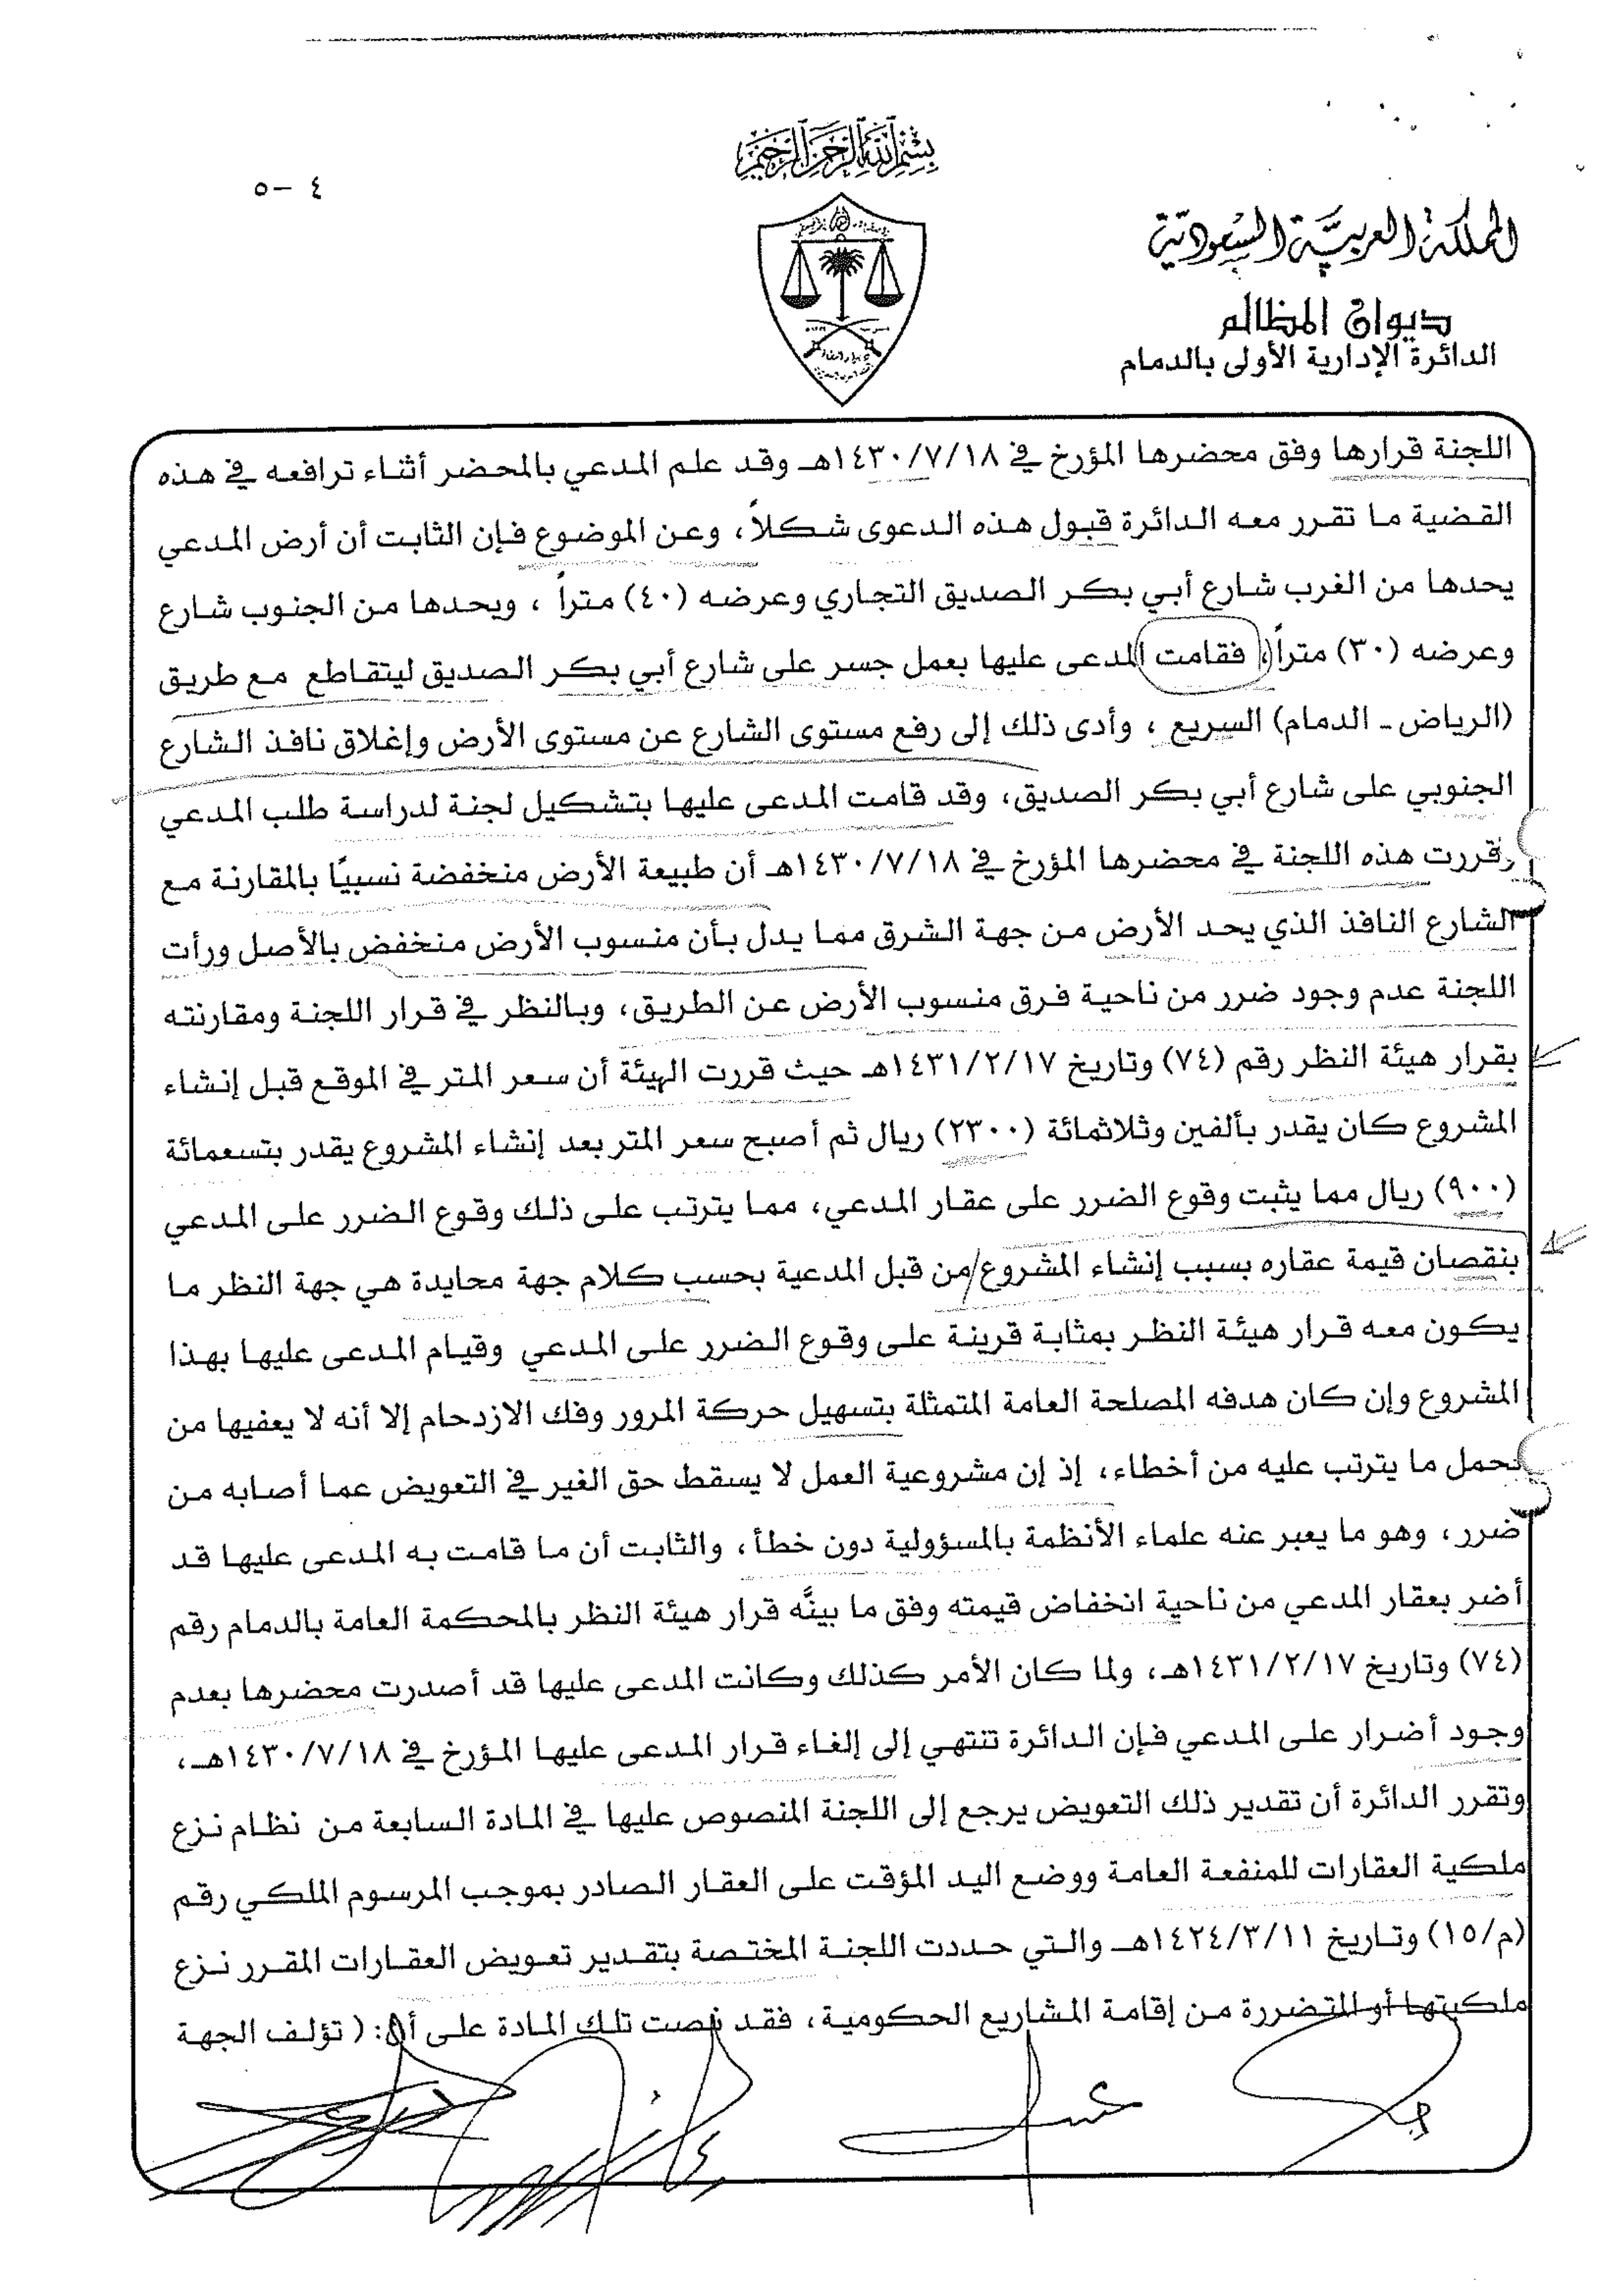 بسم الله الرحمن الرحيم
٤ -٥
المملكة العربية السعودية
ديوان المظالم
الدائرة الإدارية الأولى بالدمام
اللجنة قرارها وفق محضرها المؤرخ في ١٤٣٠/٧/١٨هـ وقد علم المدعي بالمحضر أثناء ترافعه في هذه
القضية ما تقرر معه الدائرة قبول هذه الدعوى شكلاً، وعن الموضوع فإن الثابت أن أرض المدعي
يحدها من الغرب شارع أبي بكر الصديق التجاري وعرضه (٤٠) متراً ، ويحدها من الجنوب شارع
وعرضه (٣٠) متراً، فقامت المدعى عليها بعمل جسر على شارع أبي بكر الصديق ليتقاطع مع طريق
(الرياض ـ الدمام) السريع ، وأدى ذلك إلى رفع مستوى الشارع عن مستوى الأرض وإغلاق نافذ الشارع
الجنوبي على شارع أبي بكر الصديق، وقد قامت المدعى عليها بتشكيل لجنة لدراسة طلب المدعي
وقررت هذه اللجنة في محضرها المؤرخ في ١٤٣٠/٧/١٨هـ أن طبيعة الأرض منخفضة نسبيًا بالمقارنة مع
الشارع النافذ الذي يحد الأرض من جهة الشرق مما يدل بأن منسوب الأرض منخفض بالأصل ورأت
اللجنة عدم وجود ضرر من ناحية فرق منسوب الأرض عن الطريق، وبالنظر في قرار اللجنة ومقارنته
بقرار هيئة النظر رقم (٧٤) وتاريخ ١٤٣١/٢/١٧هـ حيث قررت الهيئة أن سعر المتر في الموقع قبل إنشاء
المشروع كان يقدر بألفين وثلاثمائة (٢٣٠٠) ريال ثم أصبح سعر المتر بعد إنشاء المشروع يقدر بتسعمائة
(٩٠٠) ريال مما يثبت وقوع الضرر على عقار المدعي، مما يترتب على ذلك وقوع الضرر على المدعي
بنقصان قيمة عقاره بسبب إنشاء المشروع من قبل المدعية بحسب كلام جهة محايدة هي جهة النظر ما
يكون معه قرار هيئة النظر بمثابة قرينة على وقوع الضرر على المدعي وقيام المدعى عليها بهذا
المشروع وإن كان هدفه المصلحة العامة المتمثلة بتسهيل حركة المرور وفك الازدحام إلا أنه لا يعفيها من
تحمل ما يترتب عليه من أخطاء، إذ إن مشروعية العمل لا يسقط حق الغير في التعويض عما أصابه من
ضرر، وهو ما يعبر عنه علماء الأنظمة بالمسؤولية دون خطأ، والثابت أن ما قامت به المدعى عليها قد
أضر بعقار المدعي من ناحية انخفاض قيمته وفق ما بينَّه قرار هيئة النظر بالمحكمة العامة بالدمام رقم
(٧٤) وتاريخ ١٤٣١/٢/١٧هـ، ولما كان الأمر كذلك وكانت المدعى عليها قد أصدرت محضرها بعدم
وجود أضرار على المدعي فإن الدائرة تنتهي إلى إلغاء قرار المدعى عليها المؤرخ في ١٤٣٠/٧/١٨هـ،
وتقرر الدائرة أن تقدير ذلك التعويض يرجع إلى اللجنة المنصوص عليها في المادة السابعة من نظام نزع
ملكية العقارات للمنفعة العامة ووضع اليد المؤقت على العقار الصادر بموجب المرسوم الملكي رقم
(م/١٥) وتاريخ ١٤٢٤/٣/١١هـ والتي حددت اللجنة المختصة بتقدير تعويض العقارات المقرر نزع
ملكيتها أو المتضررة من إقامة المشاريع الحكومية، فقد نصت تلك المادة على أن: ( تؤلف الجهة